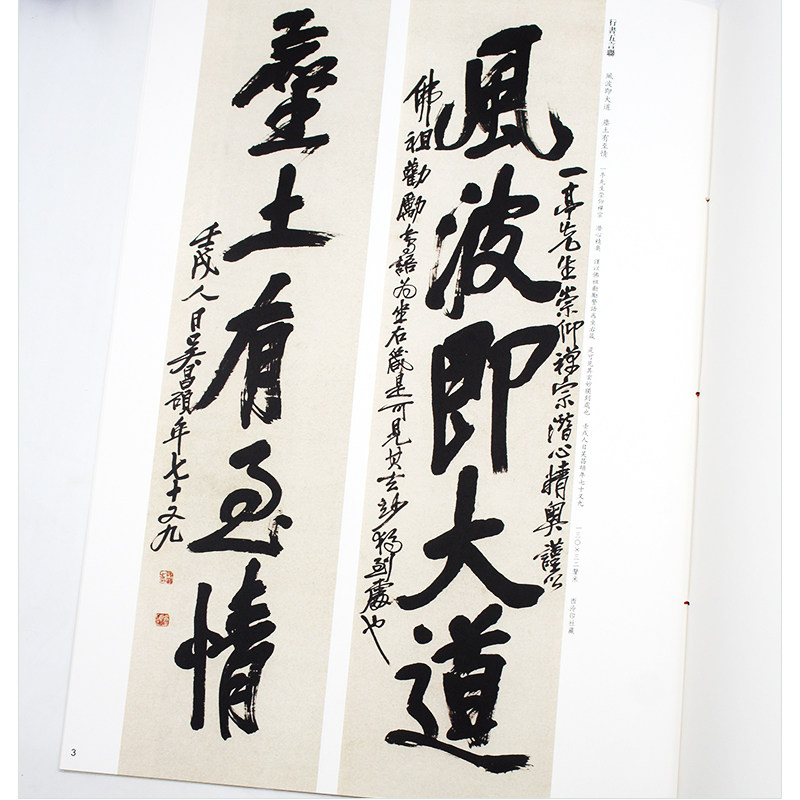 行書五言聯　風波即大道　塵土有至情　一亭先生崇仰禪宗　潛心精奧　謹以佛祖勸勵語為坐右箴　是可見其玄妙獨到處也　壬戌人日吴昌碩年七十又九　一三〇×三二釐米　西泠印社藏
一亭先生崇仰禪宗潛心精奧謹以
風波即大道
佛祖勸勵語为坐右箴是可見其玄妙獨到處也
塵土有至情
壬戌人日吴昌碩年七十又九
3